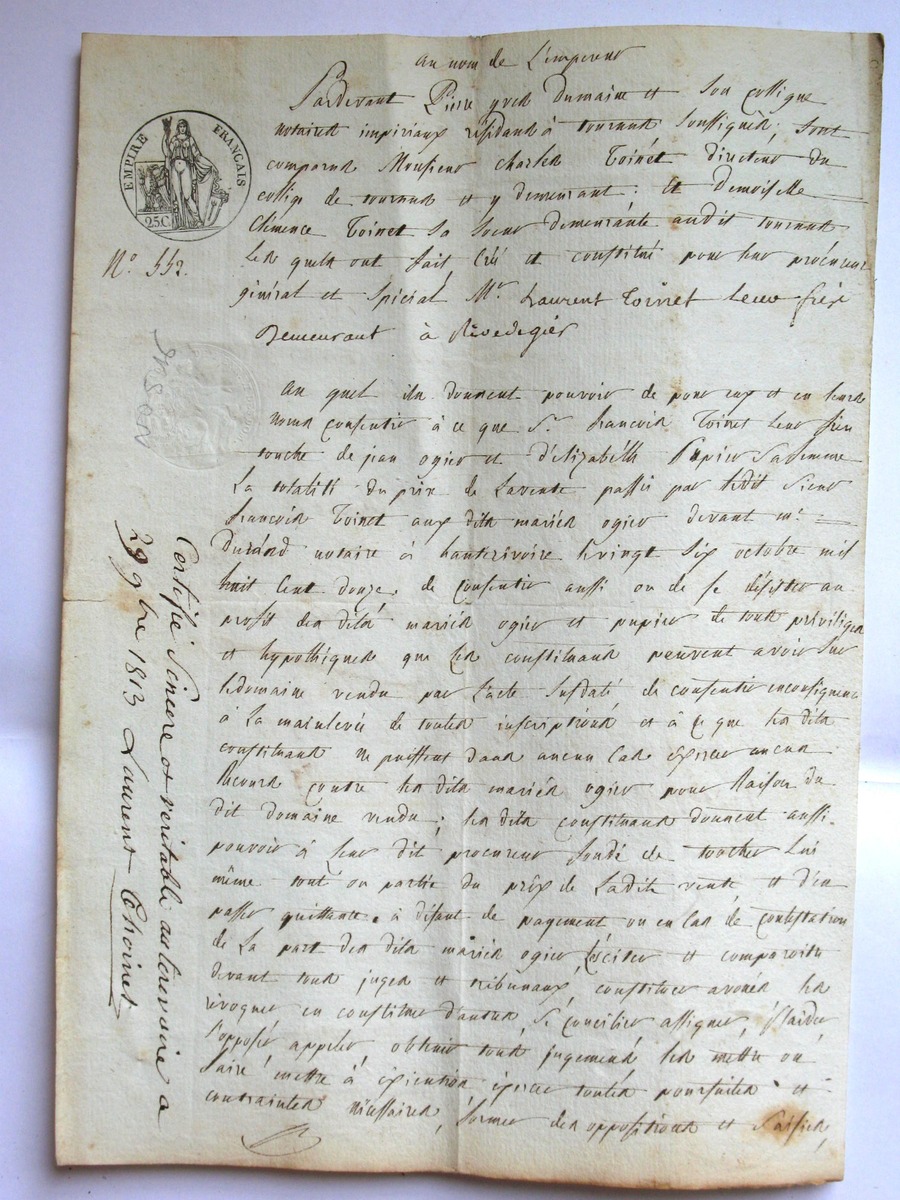 au nom de L'empereur
Pardevant Pierre yves Dumaine et son collegue
notaires impériaux résidant à tournus soussignés, sont
comparus Monsieur charles Toinet directeur du
college de tournus et y demeurant : et Demoiselle
Clémence Toinet sa soeur demeurante audit tournus
Les quels ont fait, créé et constitué pour leur procureur
général et special Mr. Laurent Toinet leur frère
Demeurant à Rivedegier
EMPIRE FRANÇAIS
25 C.
N.° 552.
au quel ils donnent pouvoir de pour eux et en leurs
noms consentir à ce que Sr. françois Toinet leur
touche de jean ogier et d'élizabeth Pupier sa femme
La totalité du prix de La vente passée par ledit sieur
françois Toinet aux dits mariés ogier devant me.
Durand notaire à hauterivoire le vingt six octobre mil
huit cent douze, de consentir aussi ou de se désister au
profit des dits mariés ogier et pupier de tous priviléges
et hypothéques que les constituans peuvent avoir sur
le domaine vendu par l'acte susdaté de consentir en conséquence
à La mainlevée de toutes inscriptions et à ce que les dits
constituans ne puissent dans aucun cas éxercer aucun
Recours contre les dits mariés ogier pour Raison du
dit domaine vendu ; les dits constituans donnent aussi
pouvoir à leur dit procureur fondé de toucher Lui
même tout ou partie du prix de Ladite vente et d'en
passer quittance, à défaut de payement ou en cas de contestation
de La part des dits mariés ogier, citer et comparoitre
devant tous juges et tribunaux, constituer avoués les
révoquer en constituer d'autres, se concilier assigner, plaider
s'opposer appeler, obtenir tous jugemens les mettre ou
faire mettre à éxécution éxercer toutes poursuites et
contraintes nécessaires, former des oppositions et saisies,
Certifié sincere et veritable auterivoire a
29 9bre 1813 Laurent Thoinet